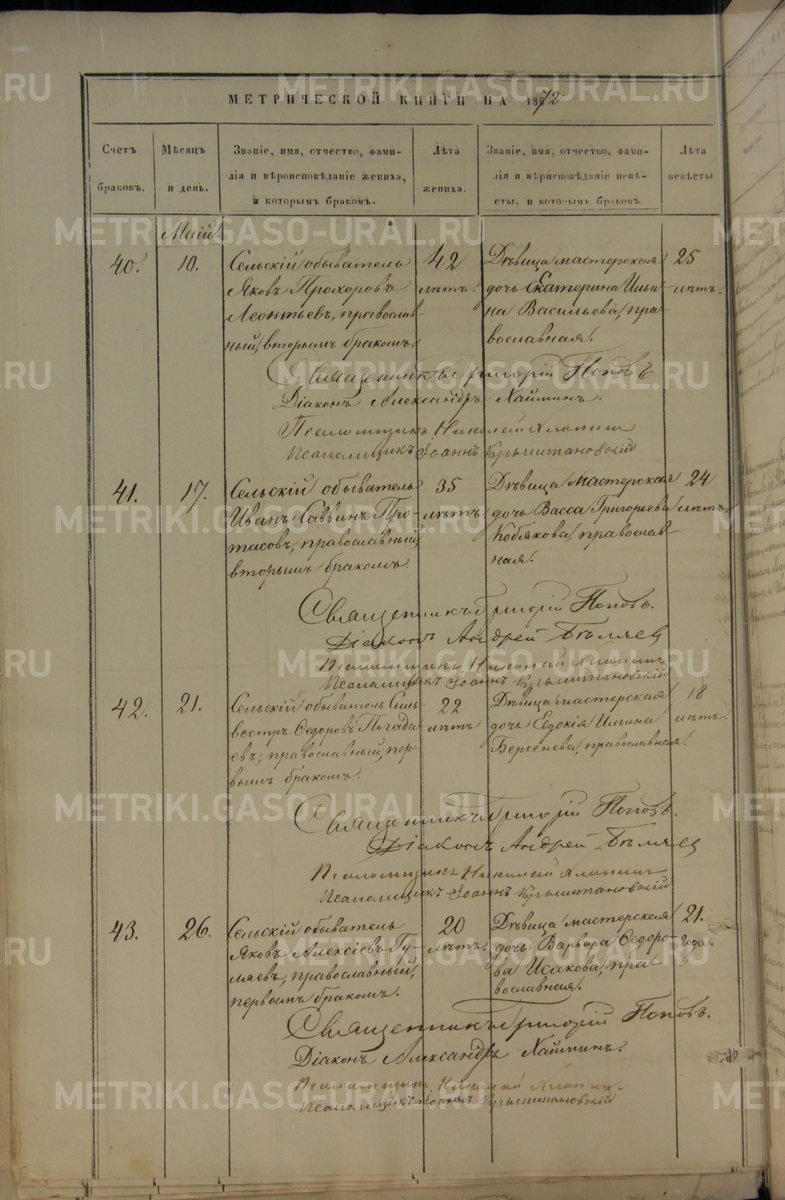 МЕТРИЧЕСКОЙ КНИГИ НА 1872
Счетъ браковъ.
Мѣсяцъ и день.
Званіе, имя, отчество, фами-
лія и вѣроисповѣданіе жениха,
и которымъ бракомъ.
Лѣта жениха.
Званіе, имя, отчество, фами-
лія и вѣроисповѣданіе невѣ-
сты, и которымъ бракомъ.
Лѣта невѣсты
Маій
40. 10. Сельскій обыватель 42 Дѣвица мастерская 25
Яковъ Прохоровъ лѣтъ. дочь Екатерина Ильи- лѣтъ.
Леонтьевъ, православ- на Васильева, пра-
ный, вторымъ бракомъ. вославная.
Священникъ Григорій Поповъ
Діаконъ Александръ
Псаломщикъ Николай
Псаломщикъ Іоаннъ
41. 17. Сельскій обыватель 35 Дѣвица мастерская 24
Иванъ Саввинъ Про- лѣтъ. дочь Васса Григорьева лѣтъ.
тасовъ, православный, Кобякова, православ-
вторымъ бракомъ. ная.
Священникъ Григорій Поповъ.
Діаконъ Андрей Бѣляев
Псаломщикъ Николай
Псаломщикъ Іоаннъ
42. 21. Сельскій обыватель Силь- 22 Дѣвица мастерская 18
вестръ Ѳедоровъ Погада- лѣтъ дочь Евдокія Ильина лѣтъ.
евъ, православный, пер- Берсенева, православная.
вымъ бракомъ.
Священникъ Григорій Поповъ.
Діаконъ Андрей Бѣляев
Псаломщикъ Николай
Псаломщикъ Іоаннъ
43. 26. Сельскій обыватель 20 Дѣвица мастерская 21.
Яковъ Алексіевъ Гу- лѣтъ. дочь Варвара Ѳедоро- года.
ляевъ, православный, ва Исакова, пра-
первымъ бракомъ. вославная.
Священникъ Григорій Поповъ.
Діаконъ Александръ
Псаломщикъ Николай
Псаломщикъ Іоаннъ
METRIKI.GASO-URAL.RU